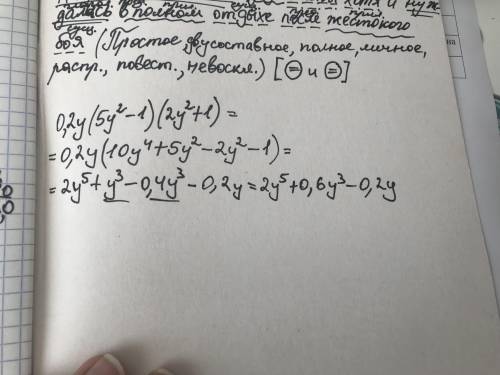 хотя и нуж
далась в полном отдыхе после жестокого
боя (Простое, двусоставное, полное, личное,
распр., повест., невоскл.) [⊖ и ⊜]
0,2y(5y²-1)(2y²+1)=
=0,2y(10y⁴+5y²-2y²-1)=
=2y⁵+y³-0,4y³-0,2y=2y⁵+0,6y³-0,2y